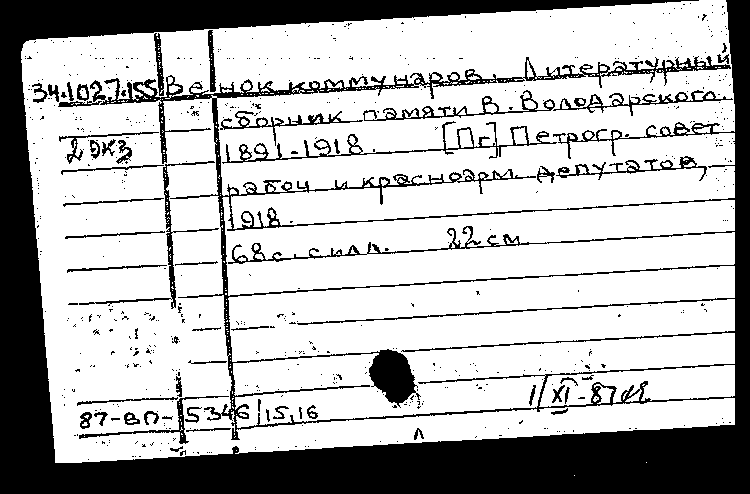 34.1027.155 Венок коммунаров. Литературный
сборник памяти В. Володарского.
2 экз 1891-1918. [Пг], Петрогр. совет
рабоч и красноарм. депутатов,
1918.
68 с. с илл. 22 см
1/XI-87
87-ВП-5346/15,16